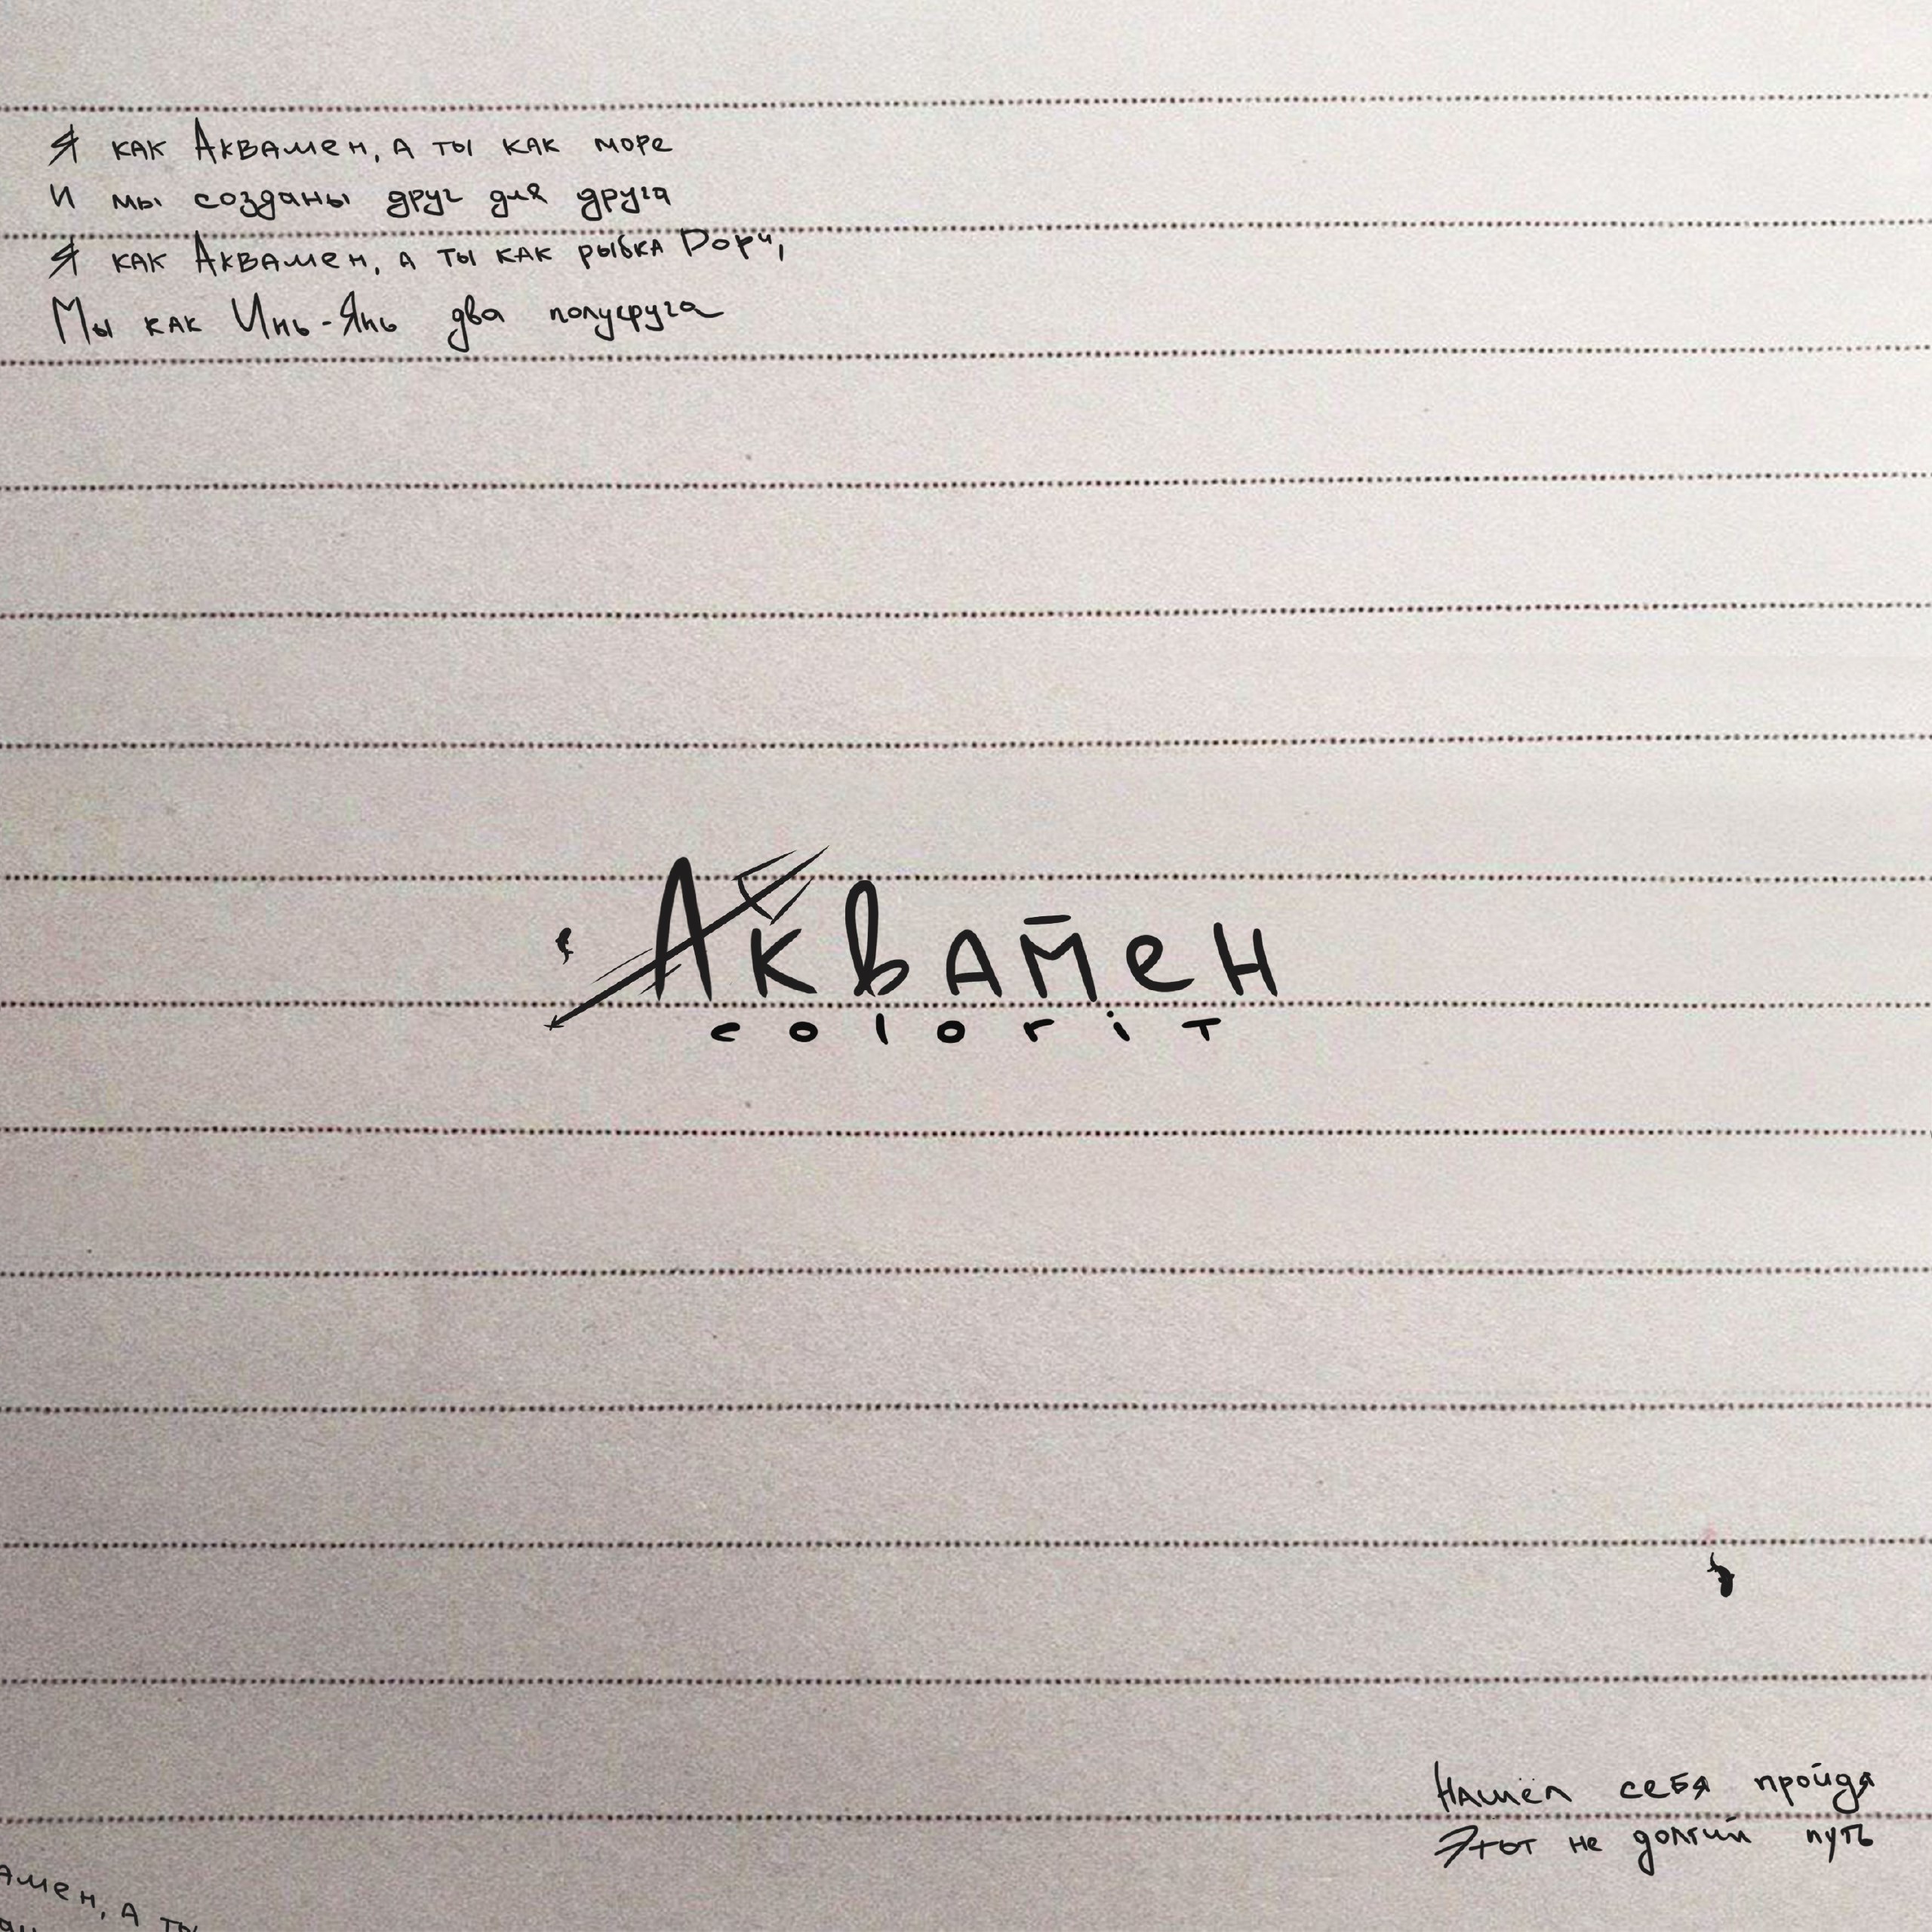 Я как Аквамен, а ты как море
И мы созданы друг для друга
Я как Аквамен, а ты как рыбка Dори,
Мы как Инь-Янь два полукруга
Аквамен
colorit
Нашёл себя пройдя
Этот не долгий путь
амен, а ты